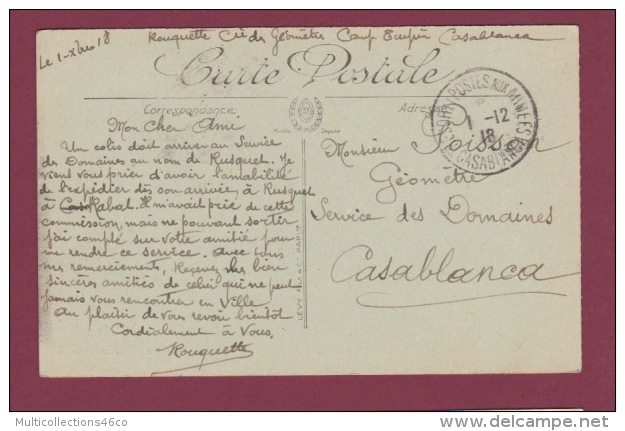 Le 1-Xbre 18
Rouquette Cie des Géomètres Camp Turpin Casablanca
Carte Postale
Correspondance
Adresse
Mon Cher Ami
Un colis doit arriver au Service
des Domaines au nom de Rusquet. Je
viens vous prier d'avoir l'amabilité
de l'expédier dès son arrivée, à Rusquet
à Rabat. Il m'avait prié de cette
commission, mais ne pouvant sortir
j'ai compté sur votre amitié pour
me rendre ce service. Avec tous
mes remerciements, Recevez les bien
sincères amitiés de celui qui ne peut
jamais vous rencontrer en Ville
Au plaisir de vous revoir bientôt
Cordialement à Vous,
Rouquette
LEVY FILS & Cie PARIS
TRÉSOR ET POSTES AUX ARMÉES
1 -12
18
CASABLANCA
Monsieur Poisson
Géomètre
Service des Domaines
Casablanca
Multicollections46co
delcampe.net